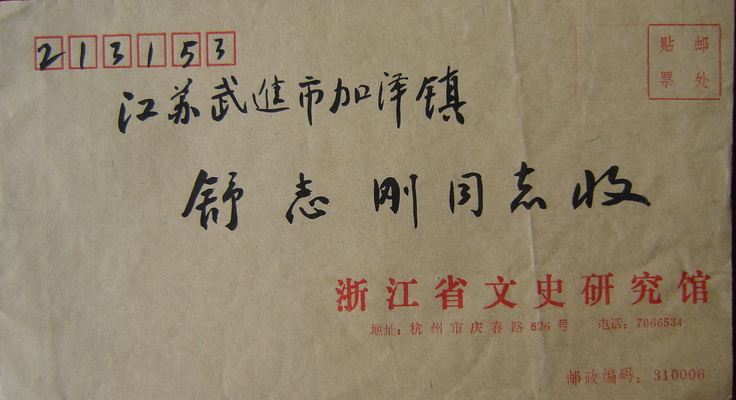 213153
贴邮
票处
江苏武进市加泽镇
舒志刚同志收
浙江省文史研究馆
地址：杭州市庆春路626号 电话：7066534
邮政编码：310006